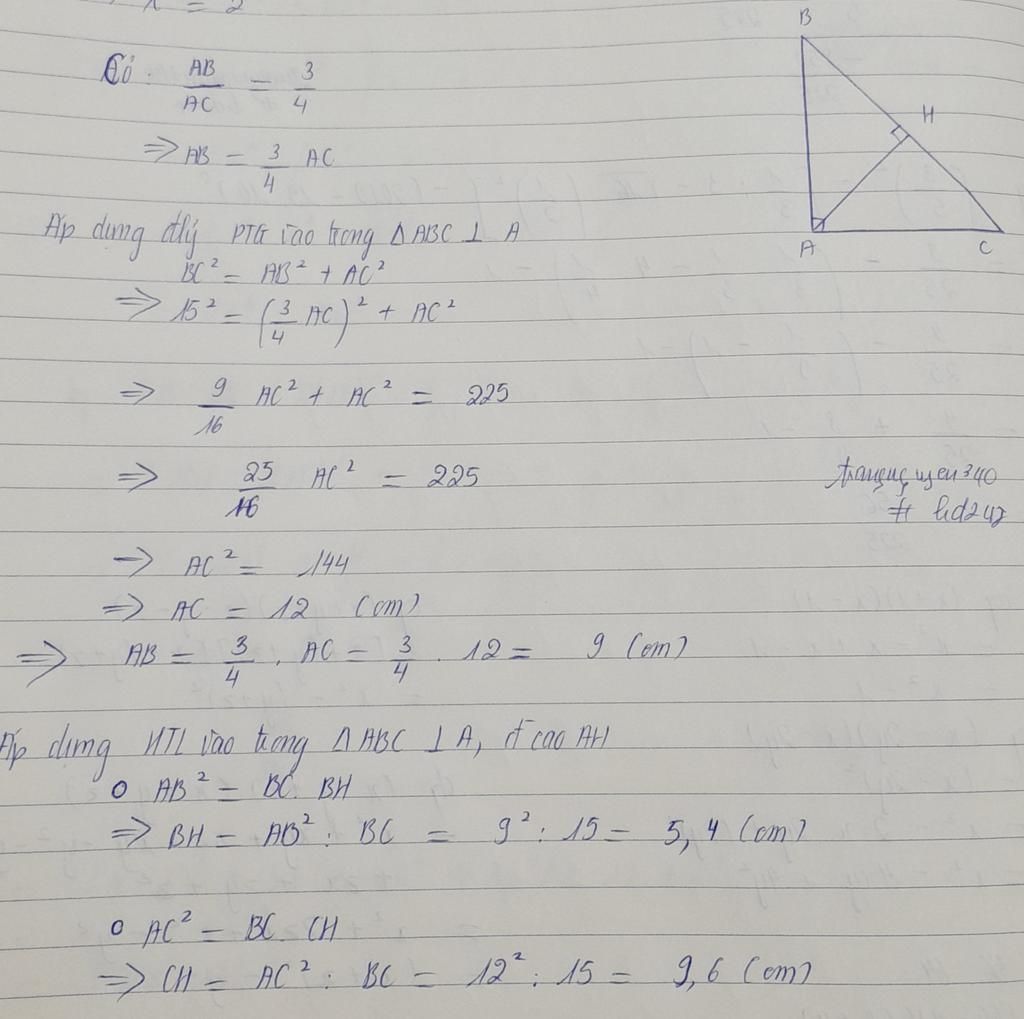 x = 2
Có : AB/AC = 3/4
⇒ AB = 3/4 AC
Áp dụng đlý PTG vào trong Δ ABC ⊥ A
BC² = AB² + AC²
⇒ 15² = (3/4 AC)² + AC²
⇒ 9/16 AC² + AC² = 225
⇒ 25/16 AC² = 225
⇒ AC² = 144
⇒ AC = 12 (cm)
⇒ AB = 3/4 . AC = 3/4 . 12 = 9 (cm)
Áp dụng HTL vào trong Δ ABC ⊥ A, đ cao AH
o AB² = BC. BH
⇒ BH = AB² : BC = 9² : 15 = 5,4 (cm)
o AC² = BC. CH
⇒ CH = AC² : BC = 12² : 15 = 9,6 (cm)
B
H
A
C
# hd247